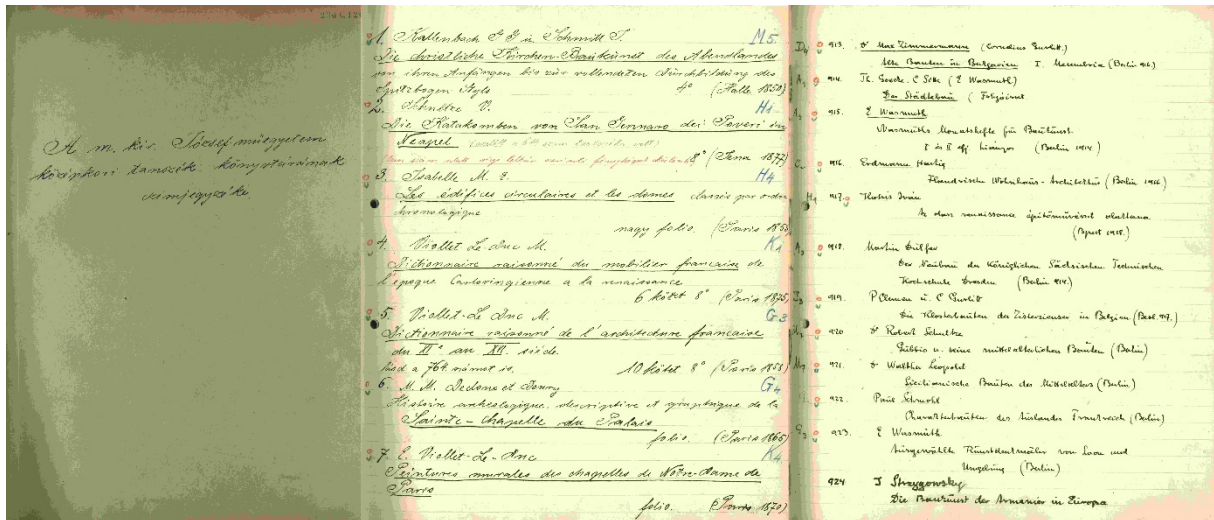 A m. kir. József műegyetem
középkori tanszék könyvtárának
címjegyzéke.
1. Kallenbach G G u Schmitt J. M5.
Die christliche Kirchen-Baukunst des Abendlandes
von ihren Anfängen bis zur vollendeten Durchbildung des
Spitzbogen Styls 4° (Halle 1850)
2. Schultze V. H1
Die Katakomben von San Gennaro dei Poveri in
Neapel
8° (Jena 1877)
3. Isabelle M. E. H4
Les édifices circulaires et les dômes classés par ordre
chronologique
nagy folio. (Paris 1855)
4. Viollet Le Duc M. K1
Dictionnaire raisonné du mobilier française de
l'époque Carlovingienne a la renaissance
6 kötet 8° (Paris 1875)
5. Viollet-Le Duc M. G3
Dictionnaire raisonné de l'architecture française
du XI° au XVI. siécle.
lásd a 764 számot is. 10 kötet 8° (Paris 1858)
6. M. M. Decloux et Doury G4
Histoire archéologique, descriptive et graphique de la
Sainte-Chapelle du Palais
folio. (Paris 1865)
7. E. Viollet-Le-Duc K4
Peintures murales des chapelles de Notre-Dame de
Paris
folio. (Paris 1870)
913. Dr Max Zimmermann (Cornelius Gurlitt.)
Alte Bauten in Bulgarien I. Mesembria (Berlin 916.)
914. Th. Goecke. C Sitte (E Wasmuth)
Der Städtebau (Folyóirat
915. E Wasmuth
Wasmuths Monatshefte für Baukunst.
I és II évf. hiányos (Berlin 1914)
916. Erdmann Hartig
Flandrische Wohnhaus-Architektur (Berlin 1916)
917. Kotsis Iván
A olasz renaissance építőművészet oktatása
(Bpest 1918.)
918. Martin Dülfer
Der Neubau der Königlichen Sächsischen Technischen
Hochschule Dresden (Berlin 914.)
919. P Clemen u. C Gurlitt
Die Klosterbauten der Zisterzienser in Belgien (Berl. 917.)
920 Dr Robert Schultze
Gubbio u. seine mittelalterlichen Bauten (Berlin)
921. Dr Walther Leopold
Sicilianische Bauten des Mittelalters (Berlin)
922. Paul Schmohl
Charakterbauten des Auslandes Frankreich (Berlin)
923. E Wasmuth
Ausgewählte Kunstdenkmäler von Laon und
Umgebung (Berlin)
924 J Strzygowsky
Die Baukunst der Armenier in Europa